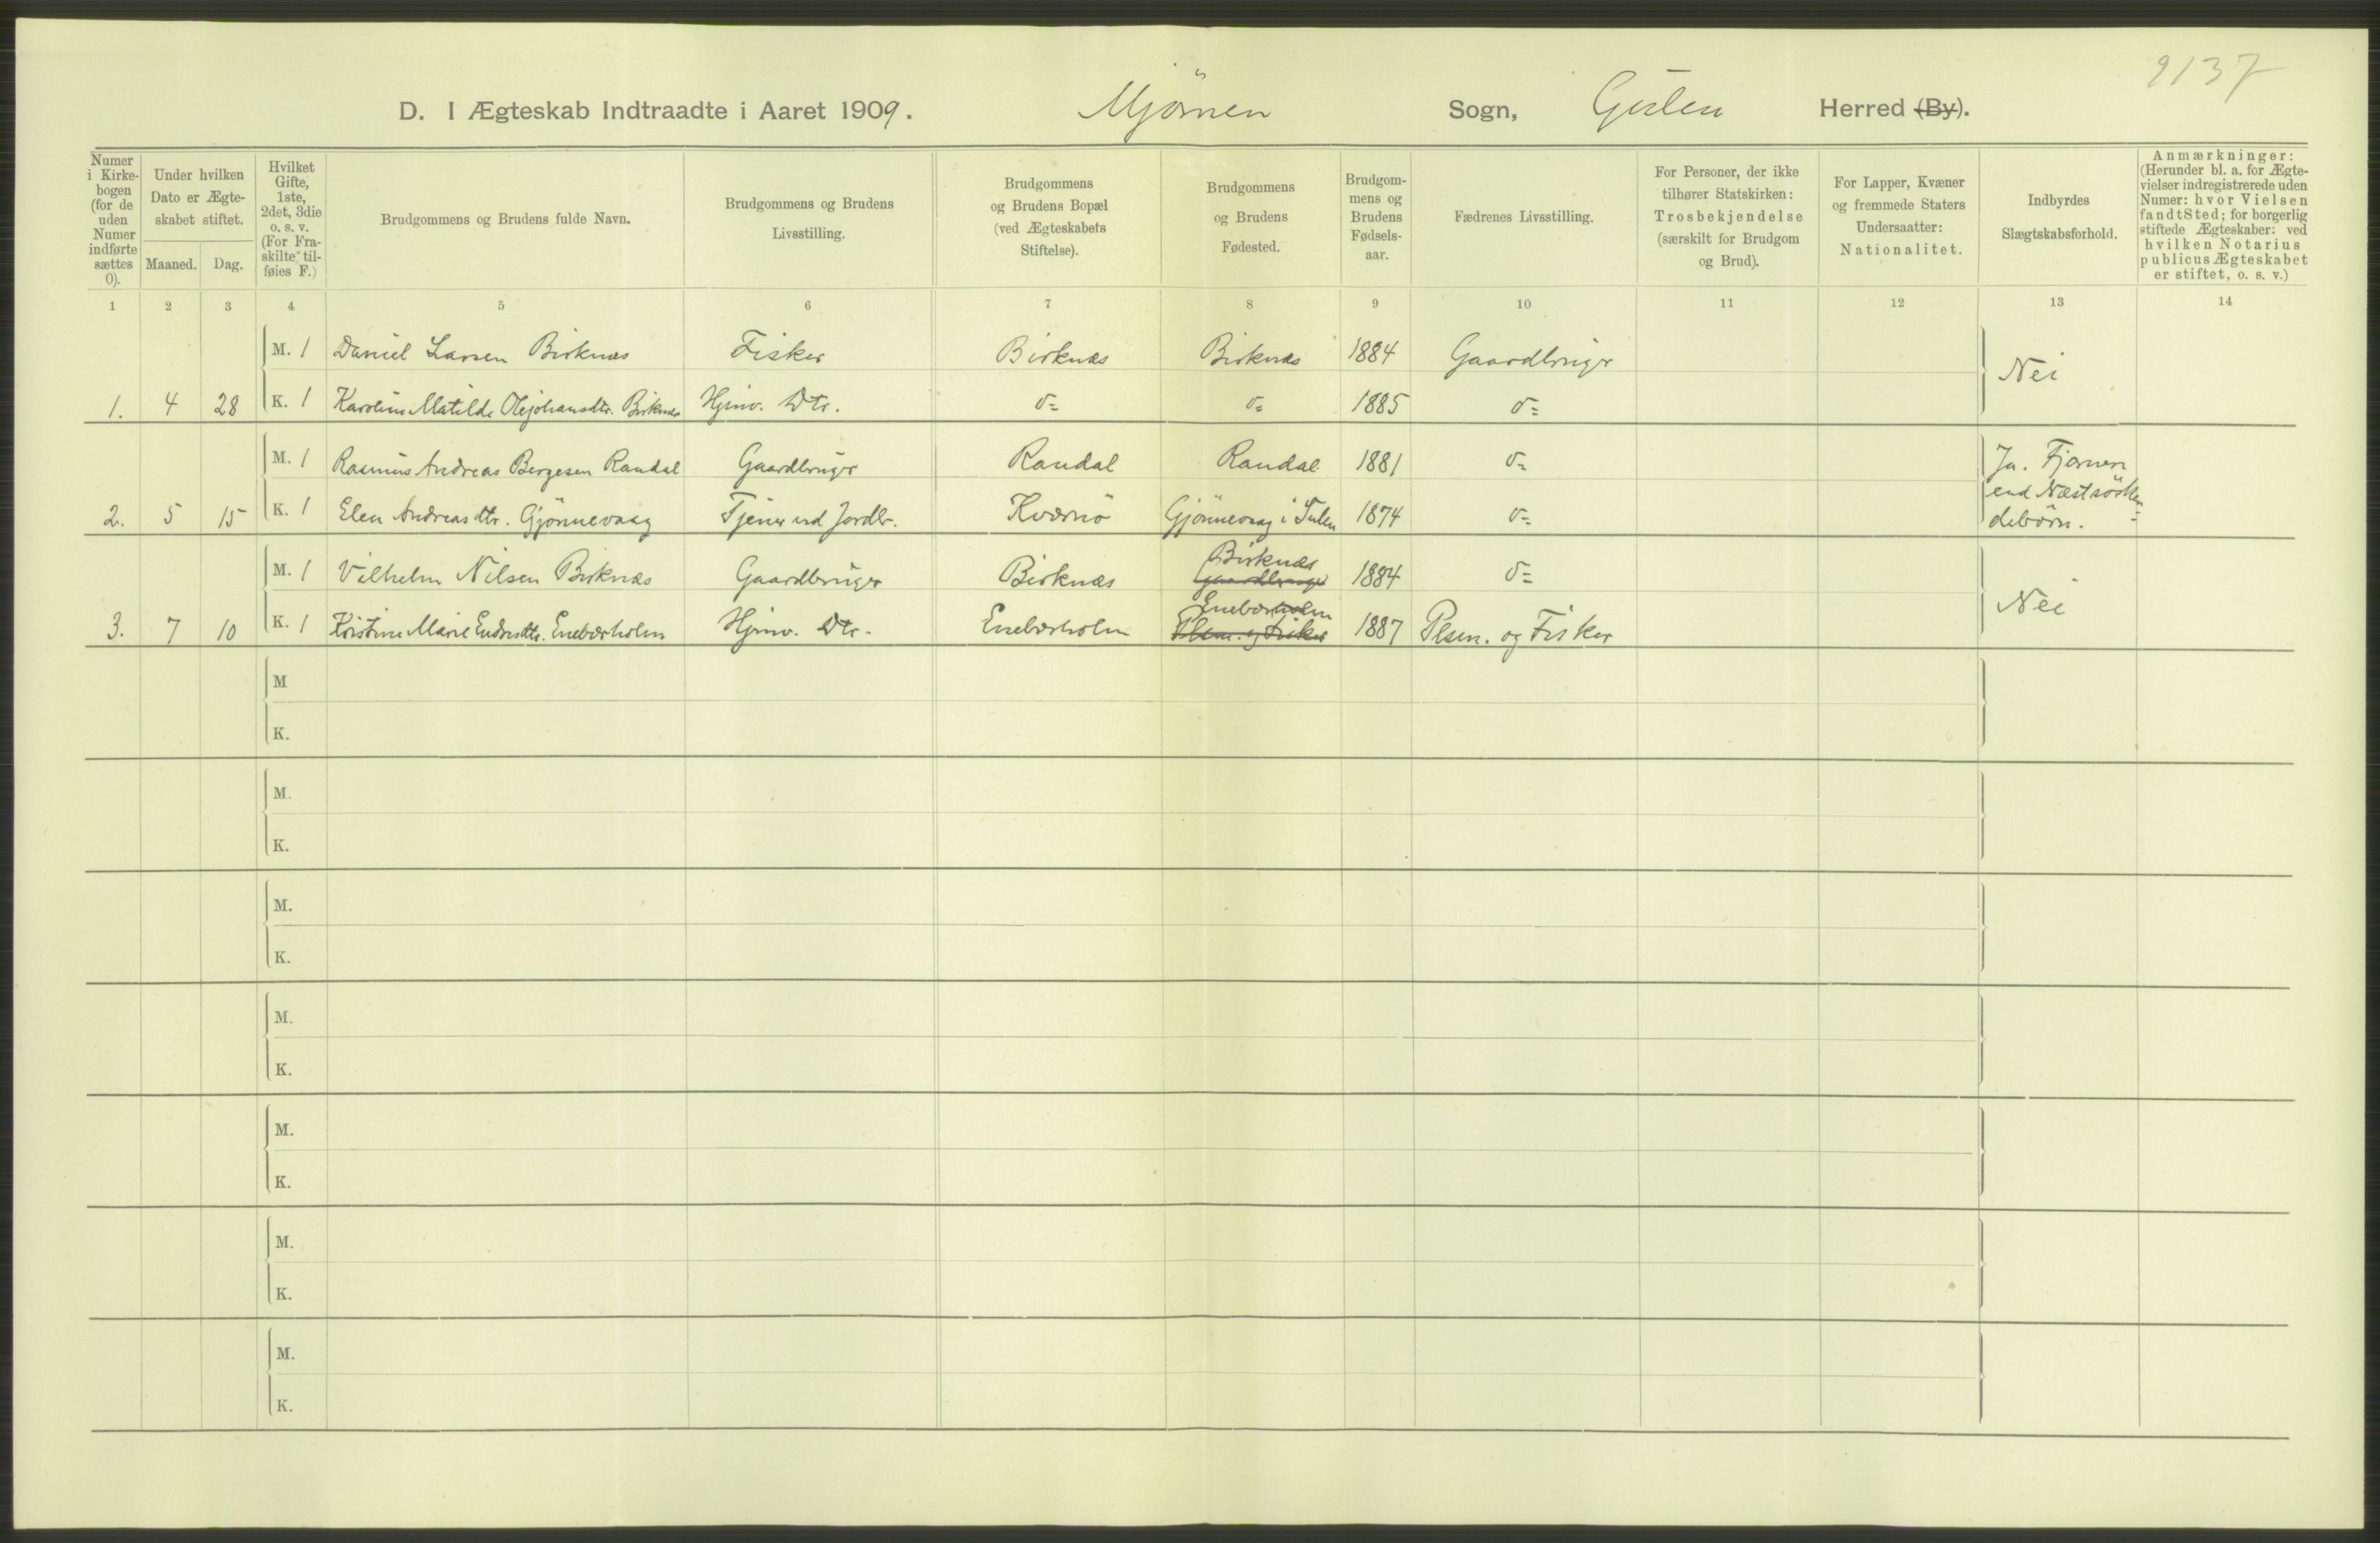 9137
D. I Ægteskab Indtraadte i Aaret 1909. Mjömen Sogn, Gulen Herred (By).
Numer i Kirkebogen (for de uden Numer indførte sættes 0).
Under hvilken Dato er Ægteskabet stiftet.
Maaned. Dag.
Hvilket Gifte, 1ste, 2det, 3die o. s. v. (For Fraskilte tilføies F.)
Brudgommens og Brudens fulde Navn.
Brudgommens og Brudens Livsstilling.
Brudgommens og Brudens Bopæl (ved Ægteskabets Stiftelse).
Brudgommens og Brudens Fødested.
Brudgommens og Brudens Fødselsaar.
Fædrenes Livsstilling.
For Personer, der ikke tilhører Statskirken: Trosbekjendelse (særskilt for Brudgom og Brud).
For Lapper, Kvæner og fremmede Staters Undersaatter: Nationalitet.
Indbyrdes Slægtskabsforhold.
Anmærkninger: (Herunder bl. a. for Ægtevielser indregistrerede uden Numer: hvor Vielsen fandt Sted; for borgerlig stiftede Ægteskaber: ved hvilken Notarius publicus Ægteskabet er stiftet, o. s. v.)
1 2 3 4 5 6 7 8 9 10 11 12 13 14
M. 1 Daniel Larsen Birknæs Fisker Birknæs Birknæs 1884 Gaardbruger
Nei
1. 4 28 K. 1 Karoline Matilde Olejohansdtr. Birknæs Hjmv. Dtr. d= d= 1885 d=
M. 1 Rasmus Andreas Bergesen Randal Gaardbruger Randal Randal 1881 d=
Ja. Fjernere
end Næstsösken
debörn.
2. 5 15 K. 1 Elen Andreasdtr. Gjönnevaag Tjener ved Jordbr. Kværnö Gjönnevaag i Sulen 1874 d=
M. 1 Vilhelm Nilsen Birknæs Gaardbruger Birknæs Birknæs gaardbruger 1884 d=
Nei
3. 7 10 K. 1 Kristine Marie Endresdtr. Enebærholm Hjmv. Dtr. Enebærholm Enebærholm Plsm. og Fisker 1887 Plsm. og Fisker
M
K.
M.
K.
M.
K.
M.
K.
M.
K.
M.
K.
M.
K.